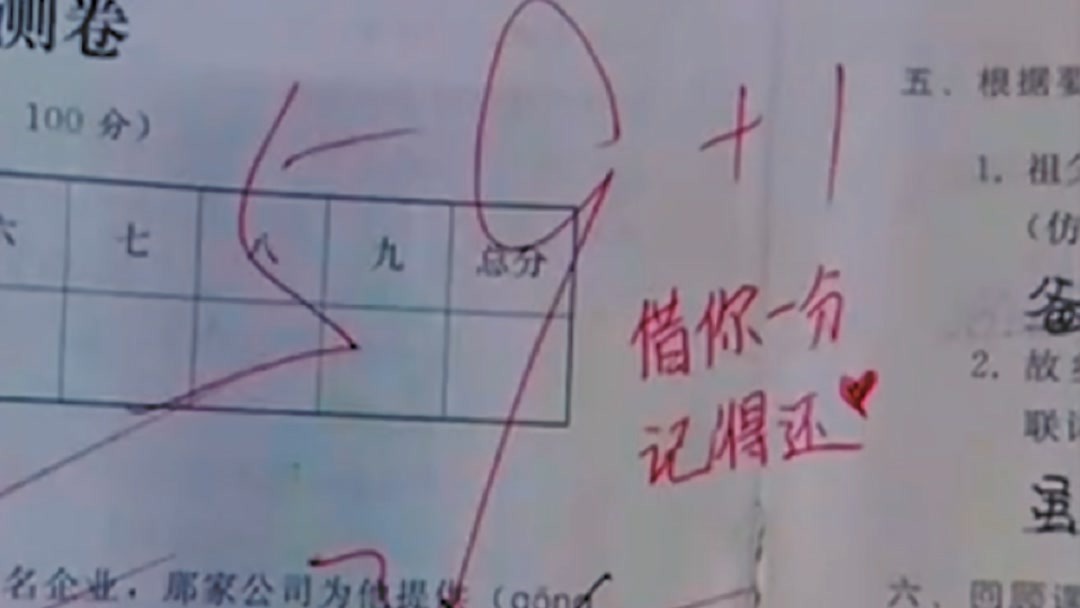 测卷
100 分）
59 + 1
六 七 八 九 总分
借你一分
记得还
五、根据要
1. 祖父
（仿
爸
2. 故乡
联
虽
名企业，那家公司为他提供（gōng
六、回题课